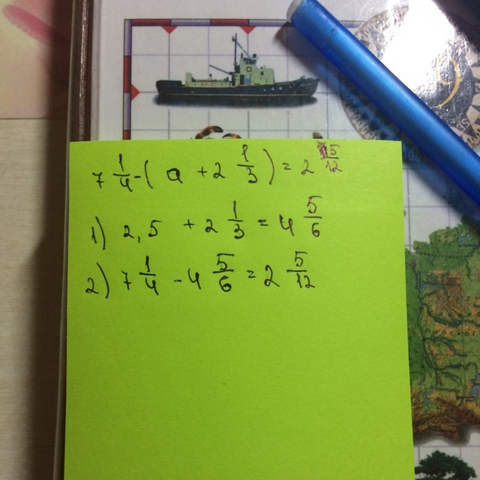 7 1/4 - ( a + 2 1/3 ) = 2 5/12
1) 2,5 + 2 1/3 = 4 5/6
2) 7 1/4 - 4 5/6 = 2 5/12